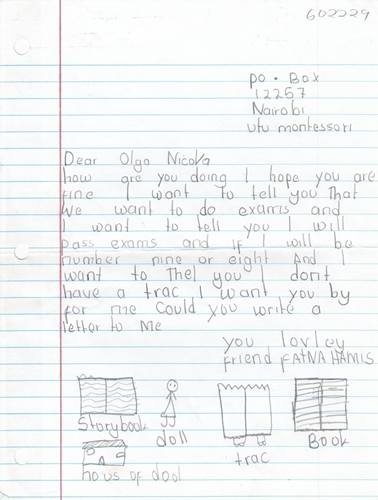 602229
po. Box
12257
Nairobi
utu montessori
Dear Olga Nicola
how are you doing I hope you are
fine I want to tell you That
we want to do exams and
I want to tell you I will
pass exams and if I will be
number nine or eight And I
want to thel you I dont
have a trac I want you by
for me Could you write a
letter to Me
you lovley
friend FATNA HAMIS
Storybook
doll
trac
Book
hous of dool